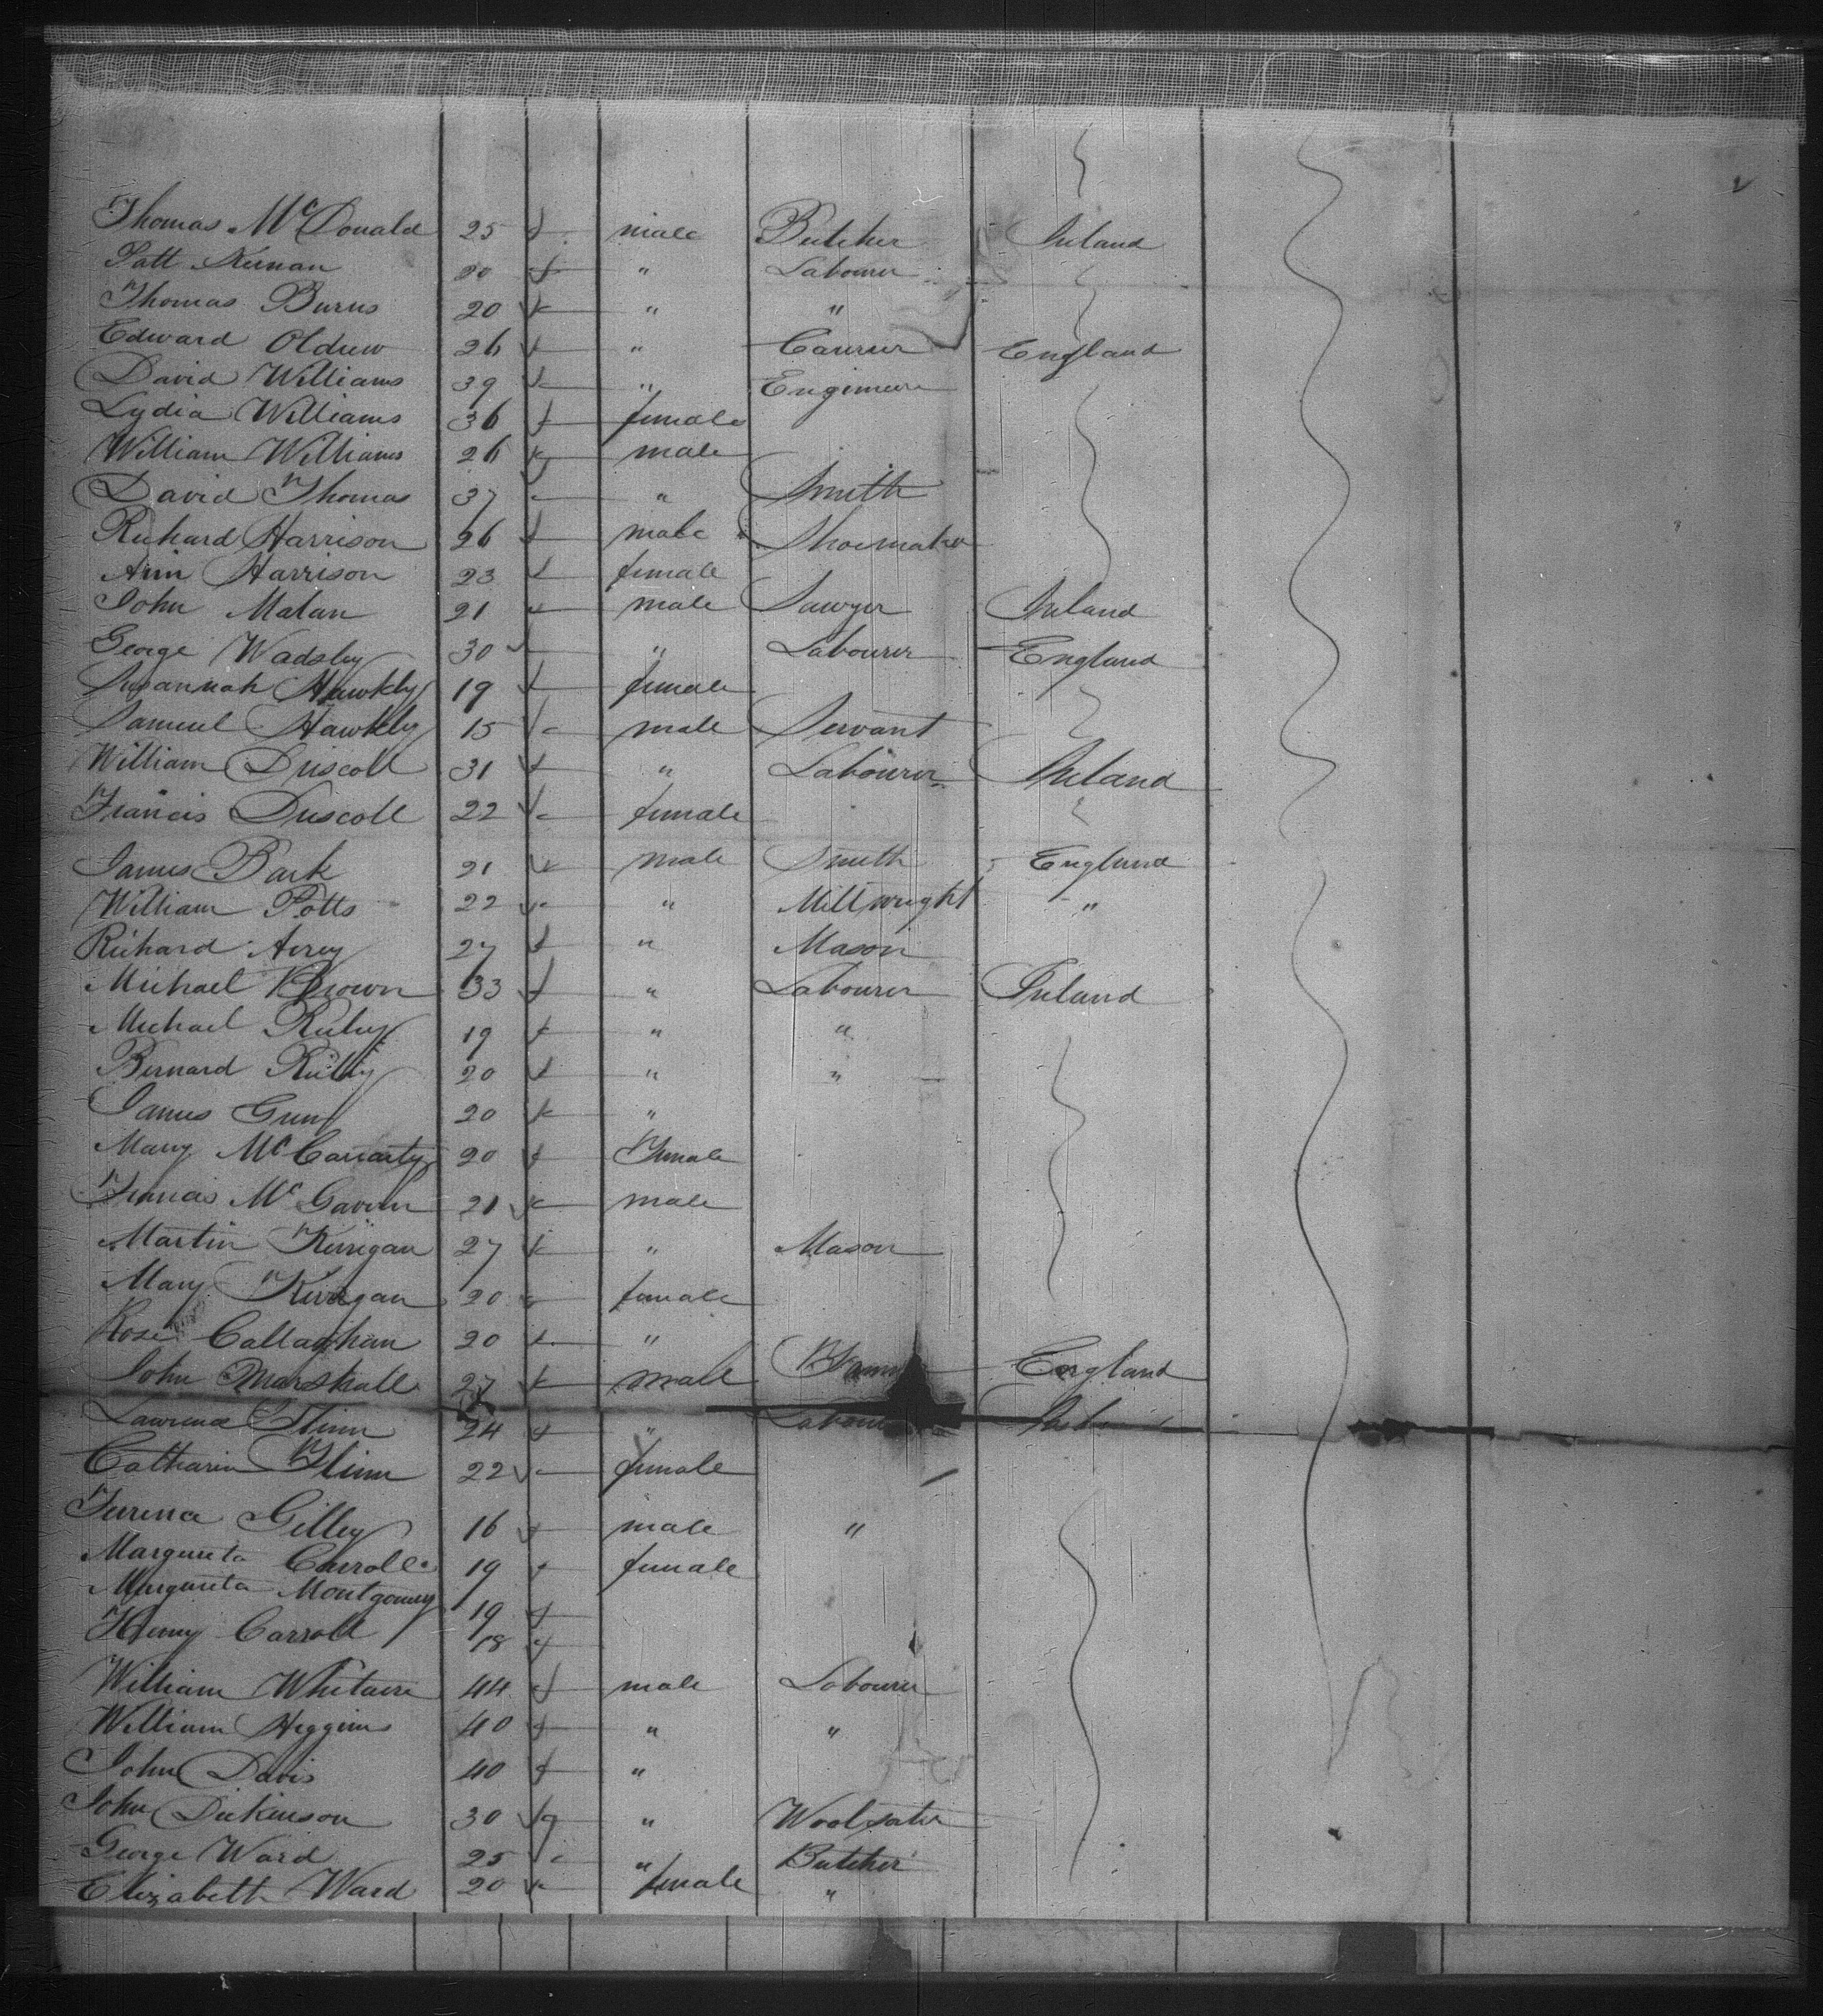 Thomas McDonald 25 male Butcher Ireland
Patt Kernan 20 " Labourer
Thomas Burns 20 " "
Edward 26 " England
David Williams 39 " Engineer
Lydia Williams 36 female
William Williams 26 male
David Thomas 37 " Smith
Richard Harrison 26 male Shoemaker
Ann Harrison 23 female
John Malan 21 male Sawyer Ireland
George Wadsley 30 " Labourer England
Susannah Hawkley 19 female
Samuel Hawkley 15 male Servant
William Driscoll 31 " Labourer Ireland
Francis Driscoll 22 female
James Bark 21 male Smith England
William Potts 22 " Millwright "
Richard Airey 27 " Mason
Michael Brown 33 " Labourer Ireland
Michael 19 " "
Bernard Reilly 20 " "
James 20 "
Mary 20 Female
Francis McGavern 21 male
Martin Kerrigan 27 " Mason
Mary Kerrigan 20 female
Rose Callaghan 20 "
John Marshall 27 male England
Lawrence Flinn 24 "
Catharin Flinn 22 female
Terence Gilley 16 male "
Margureta Carroll 19 female
Margureta Montgomery 19
Henry Carroll 18
William 44 male Labourer
William Higgins 40 " "
John Davis 40 "
John Dickinson 30 "
George Ward 25 " Butcher
Elizabeth Ward 20 female "